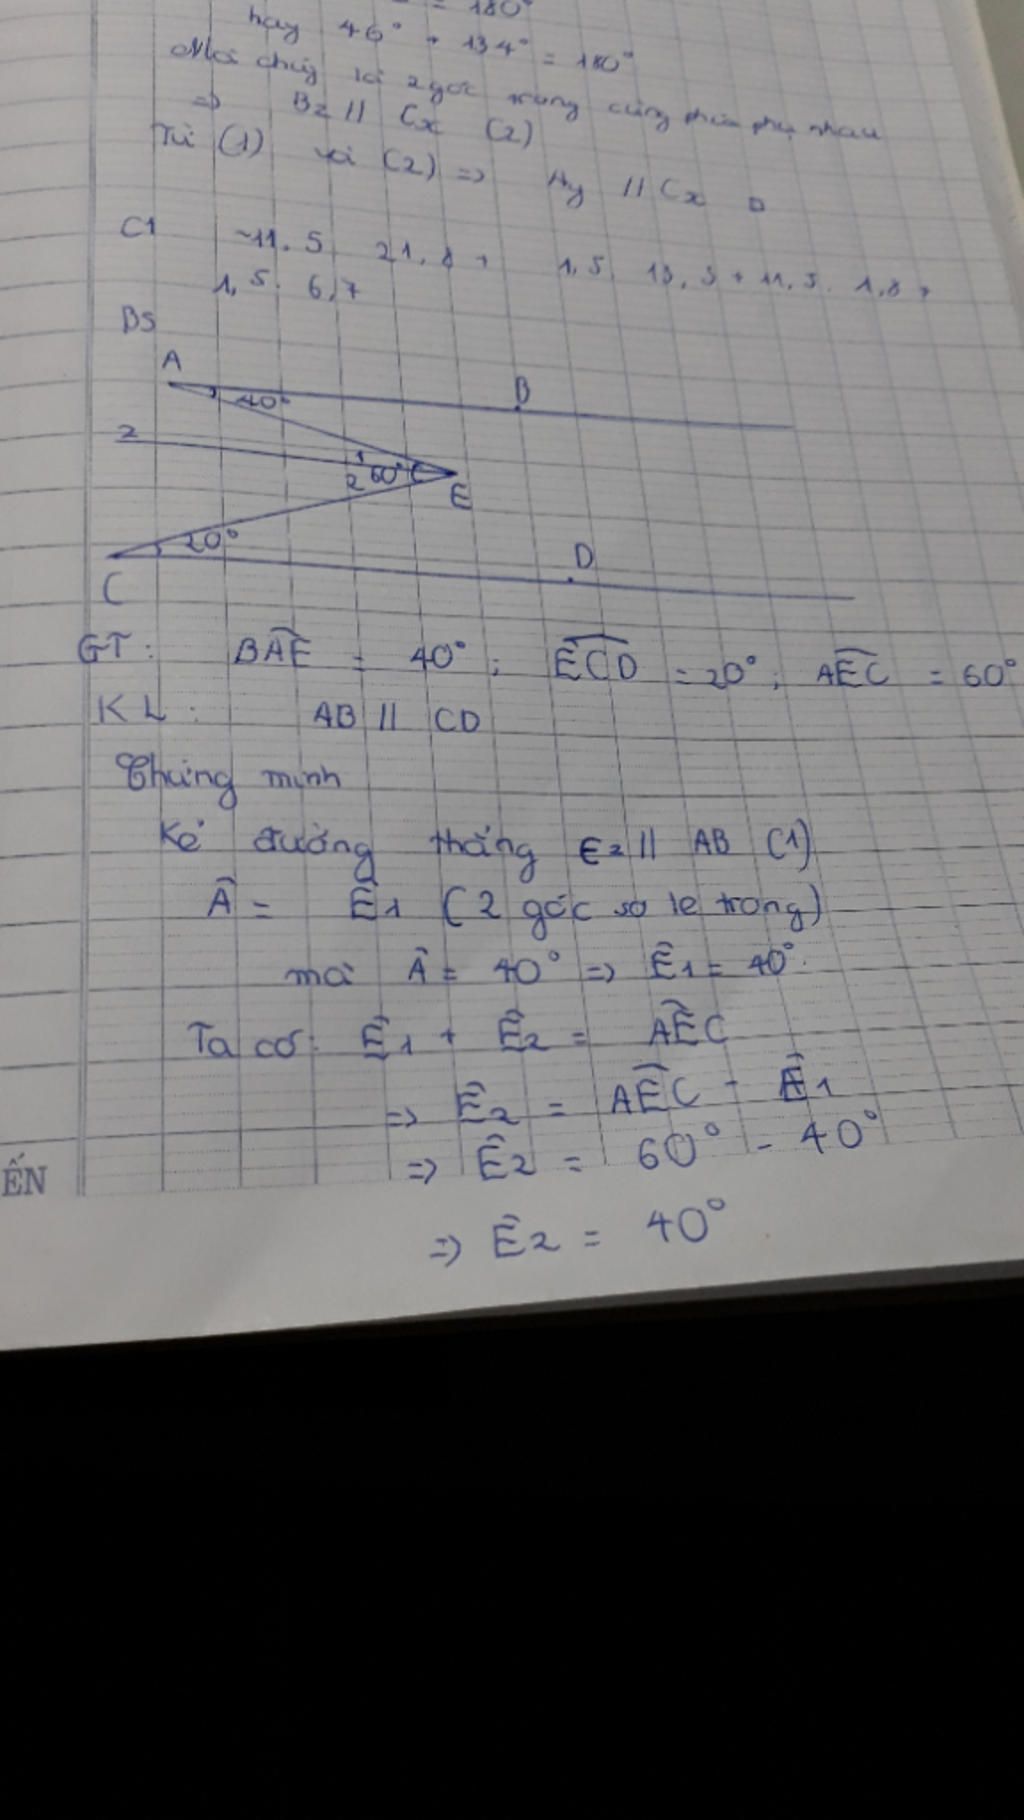 = 180°
hay 46° + 134° = 180°
Mà chúng là 2 góc trong cùng phía phụ nhau
=> Bz // Cx (2)
Từ (1) và (2) => Ay // Cx
C1 -11,5 . 21,8 + 1,5 . 13,3 + 11,5 . 1,8 +
1,5 . 6,7
B5
A
B
40°
z
1
2 60°
E
20°
D
C
GT: BAE = 40° ; ECD = 20° ; AEC = 60°
KL: AB // CD
Chứng minh
Kẻ đường thẳng Ez // AB (1)
Â = Ê1 (2 góc so le trong)
mà Â = 40° => Ê1 = 40°.
Ta có: Ê1 + Ê2 = AÊC
=> Ê2 = AÊC - Ê1
=> Ê2 = 60° - 40°
=> Ê2 = 40°
ẾN